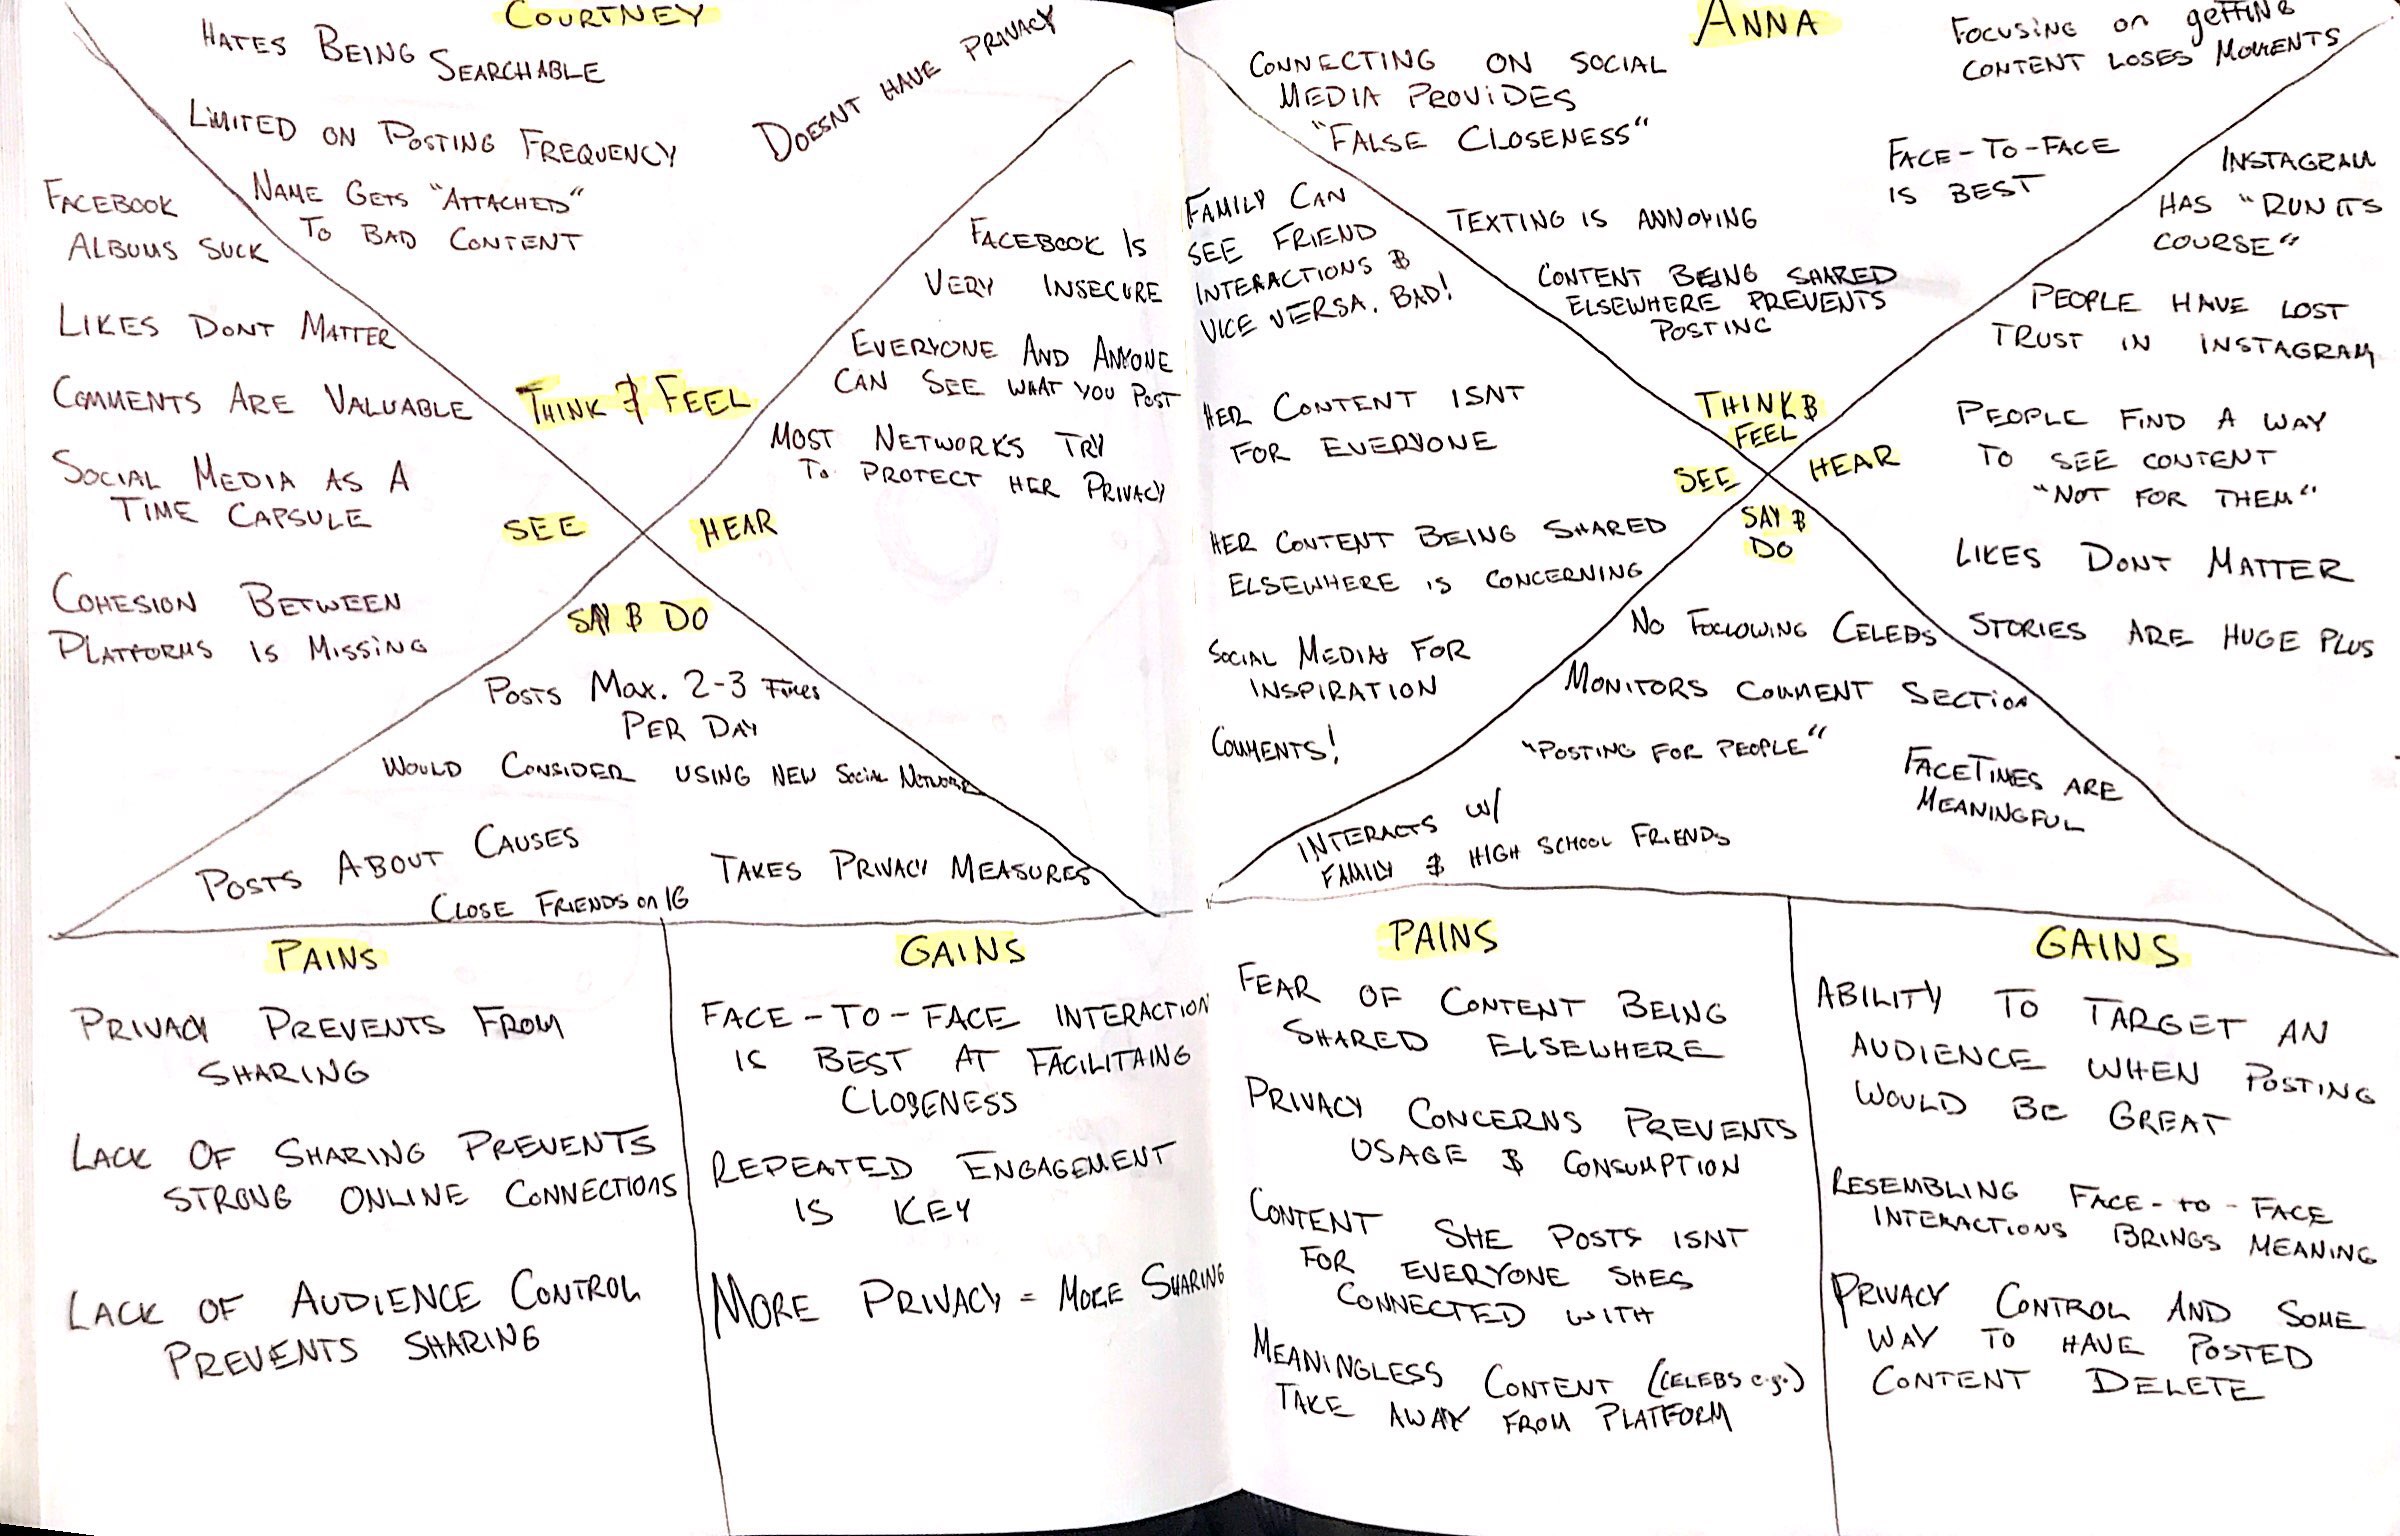 COURTNEY
HATES BEING
SEARCHABLE
DOESNT HAVE PRIVACY
LIMITED ON POSTING FREQUENCY
NAME GETS "ATTACHED"
TO BAD CONTENT
THINK & FEEL
FACEBOOK
ALBUMS SUCK
LIKES DONT MATTER
COMMENTS ARE VALUABLE
SOCIAL MEDIA AS A
TIME CAPSULE
SEE
COHESION BETWEEN
PLATFORMS IS MISSING
FACEBOOK IS
VERY INSECURE
EVERYONE AND ANYONE
CAN SEE WHAT YOU POST
MOST NETWORKS TRY
TO PROTECT HER PRIVACY
HEAR
SAY & DO
POSTS MAX. 2-3 TIMES
PER DAY
WOULD CONSIDER USING NEW SOCIAL NETWORK
POSTS ABOUT CAUSES
TAKES PRIVACY MEASURES
CLOSE FRIENDS ON IG
PAINS
PRIVACY PREVENTS FROM
SHARING
LACK OF SHARING PREVENTS
STRONG ONLINE CONNECTIONS
LACK OF AUDIENCE CONTROL
PREVENTS SHARING
GAINS
FACE-TO-FACE INTERACTION
IS BEST AT FACILITAING
CLOSENESS
REPEATED ENGAGEMENT
IS KEY
MORE PRIVACY = MORE SHARING
ANNA
CONNECTING ON SOCIAL
MEDIA PROVIDES
"FALSE CLOSENESS"
FOCUSING ON GETTING
CONTENT LOSES MOMENTS
FACE-TO-FACE
IS BEST
TEXTING IS ANNOYING
CONTENT BEING SHARED
ELSEWHERE PREVENTS
POSTING
THINK &
FEEL
FAMILY CAN
SEE FRIEND
INTERACTIONS &
VICE VERSA. BAD!
HER CONTENT ISNT
FOR EVERYONE
SEE
HER CONTENT BEING SHARED
ELSEWHERE IS CONCERNING
SOCIAL MEDIA FOR
INSPIRATION
COMMENTS!
INSTAGRAM
HAS "RUN ITS
COURSE"
PEOPLE HAVE LOST
TRUST IN INSTAGRAM
PEOPLE FIND A WAY
TO SEE CONTENT
"NOT FOR THEM"
HEAR
LIKES DONT MATTER
STORIES ARE HUGE PLUS
SAY &
DO
NO FOLLOWING CELEBS
MONITORS COMMENT SECTION
"POSTING FOR PEOPLE"
FACETIMES ARE
MEANINGFUL
INTERACTS W/
FAMILY & HIGH SCHOOL FRIENDS
PAINS
FEAR OF CONTENT BEING
SHARED ELSEWHERE
PRIVACY CONCERNS PREVENTS
USAGE & CONSUMPTION
CONTENT SHE POSTS ISNT
FOR EVERYONE SHES
CONNECTED WITH
MEANINGLESS CONTENT (CELEBS e.g.)
TAKE AWAY FROM PLATFORM
GAINS
ABILITY TO TARGET AN
AUDIENCE WHEN POSTING
WOULD BE GREAT
RESEMBLING FACE-TO-FACE
INTERACTIONS BRINGS MEANING
PRIVACY CONTROL AND SOME
WAY TO HAVE POSTED
CONTENT DELETE